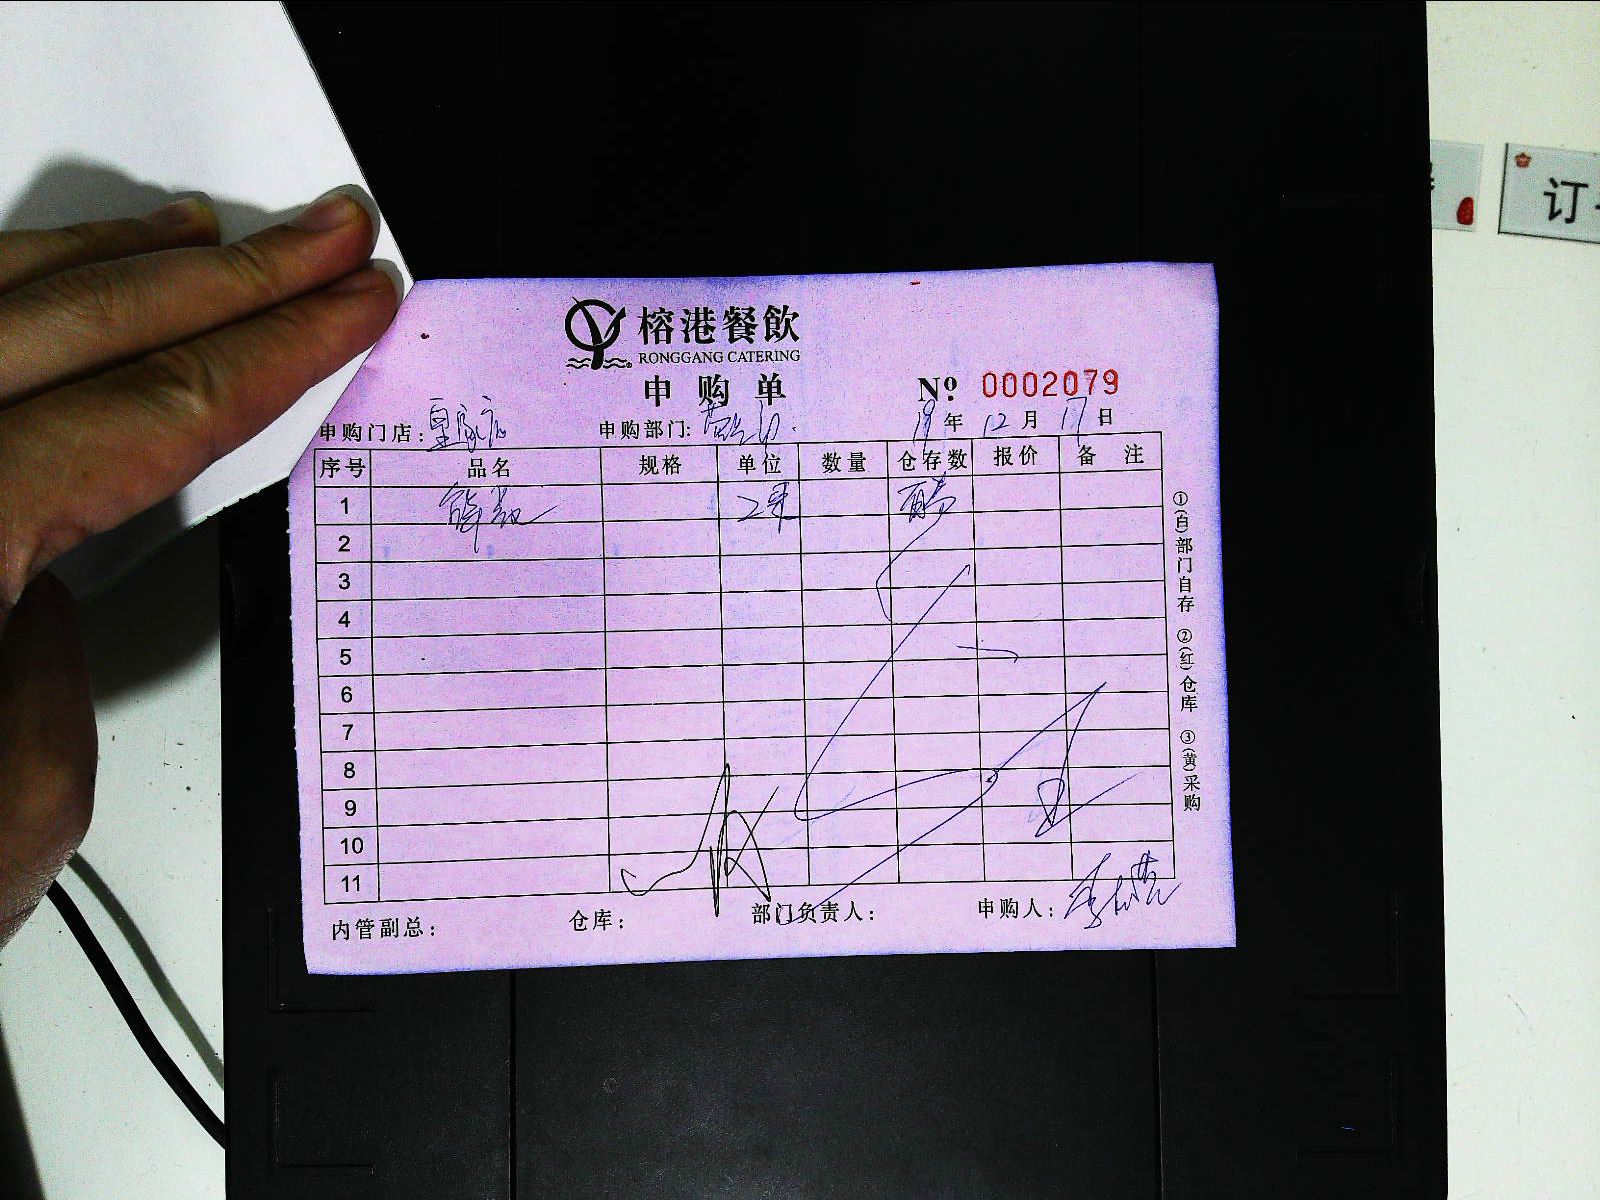 订
榕港餐飲
RONGGANG CATERING
申购单
Nº 0002079
申购门店: 皇家店 申购部门: 19年12月17日
序号 品名 规格 单位 数量 仓存数 报价 备注
1
2
3
4
5
6
7
8
9
10
11
内管副总: 仓库: 部门负责人: 申购人:
①(白)部门自存 ②(红)仓库 ③(黄)采购